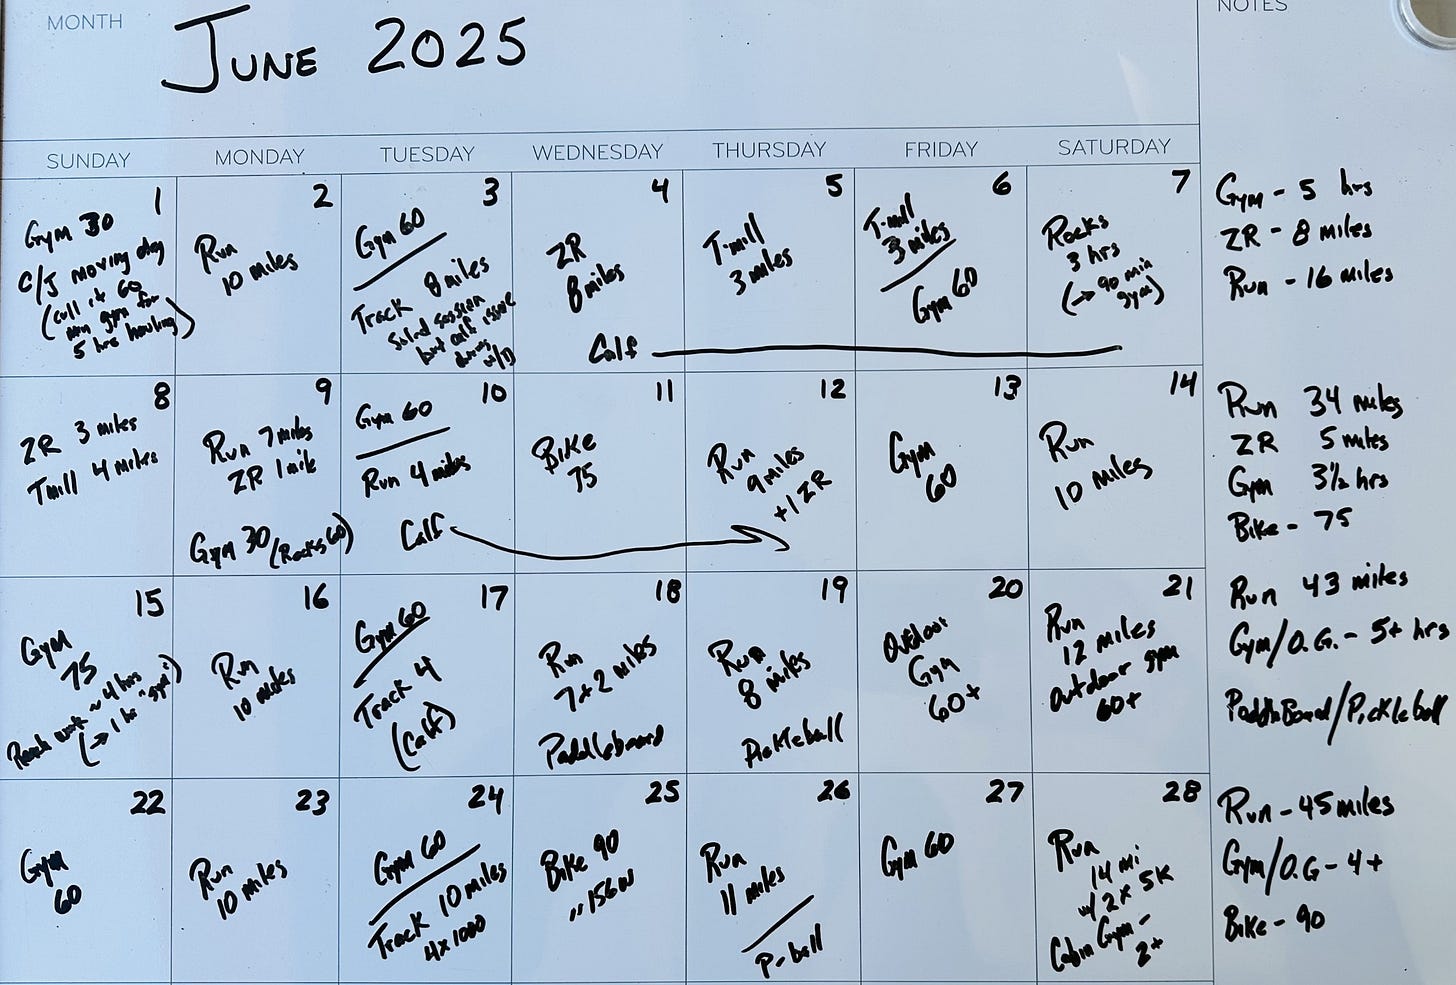 MONTH
JUNE 2025
NOTES
SUNDAY MONDAY TUESDAY WEDNESDAY THURSDAY FRIDAY SATURDAY
1
Gym 30
C/J moving day
(call it 60
min gym for
5 hrs hauling)
2
Run
10 miles
3
Gym 60
Track 8 miles
Solid session
but calf issue
during w/D
4
ZR
8 miles
Calf
5
T-mill
3 miles
6
T-mill
3 miles
Gym 60
7
Rocks
3 hrs
(→ 90 min
gym)
Gym - 5 hrs
ZR - 8 miles
Run - 16 miles
8
ZR 3 miles
Tmill 4 miles
9
Run 7 miles
ZR 1 mile
Gym 30 (Rocks 60)
10
Gym 60
Run 4 miles
Calf
11
Bike
75
12
Run
9 miles
+1 ZR
13
Gym
60
14
Run
10 miles
Run 34 miles
ZR 5 miles
Gym 3½ hrs
Bike - 75
15
Gym
75
work ~ 4 hrs
(→ 1 hr "gym")
16
Run
10 miles
17
Gym 60
Track 4
(Calf)
18
Run
7+2 miles
Paddleboard
19
Run
8 miles
Pickleball
20
Outdoor
Gym
60+
21
Run
12 miles
outdoor gym
60+
Run 43 miles
Gym/O.G. - 5+ hrs
PaddleBoard/Pickleball
22
Gym
60
23
Run
10 miles
24
Gym 60
Track 10 miles
4x1000
25
Bike 90
156w
26
Run
11 miles
P-ball
27
Gym 60
28
Run
14 mi
w/ 2x 5K
Cabin Gym -
2+
Run - 45 miles
Gym/O.G - 4+
Bike - 90